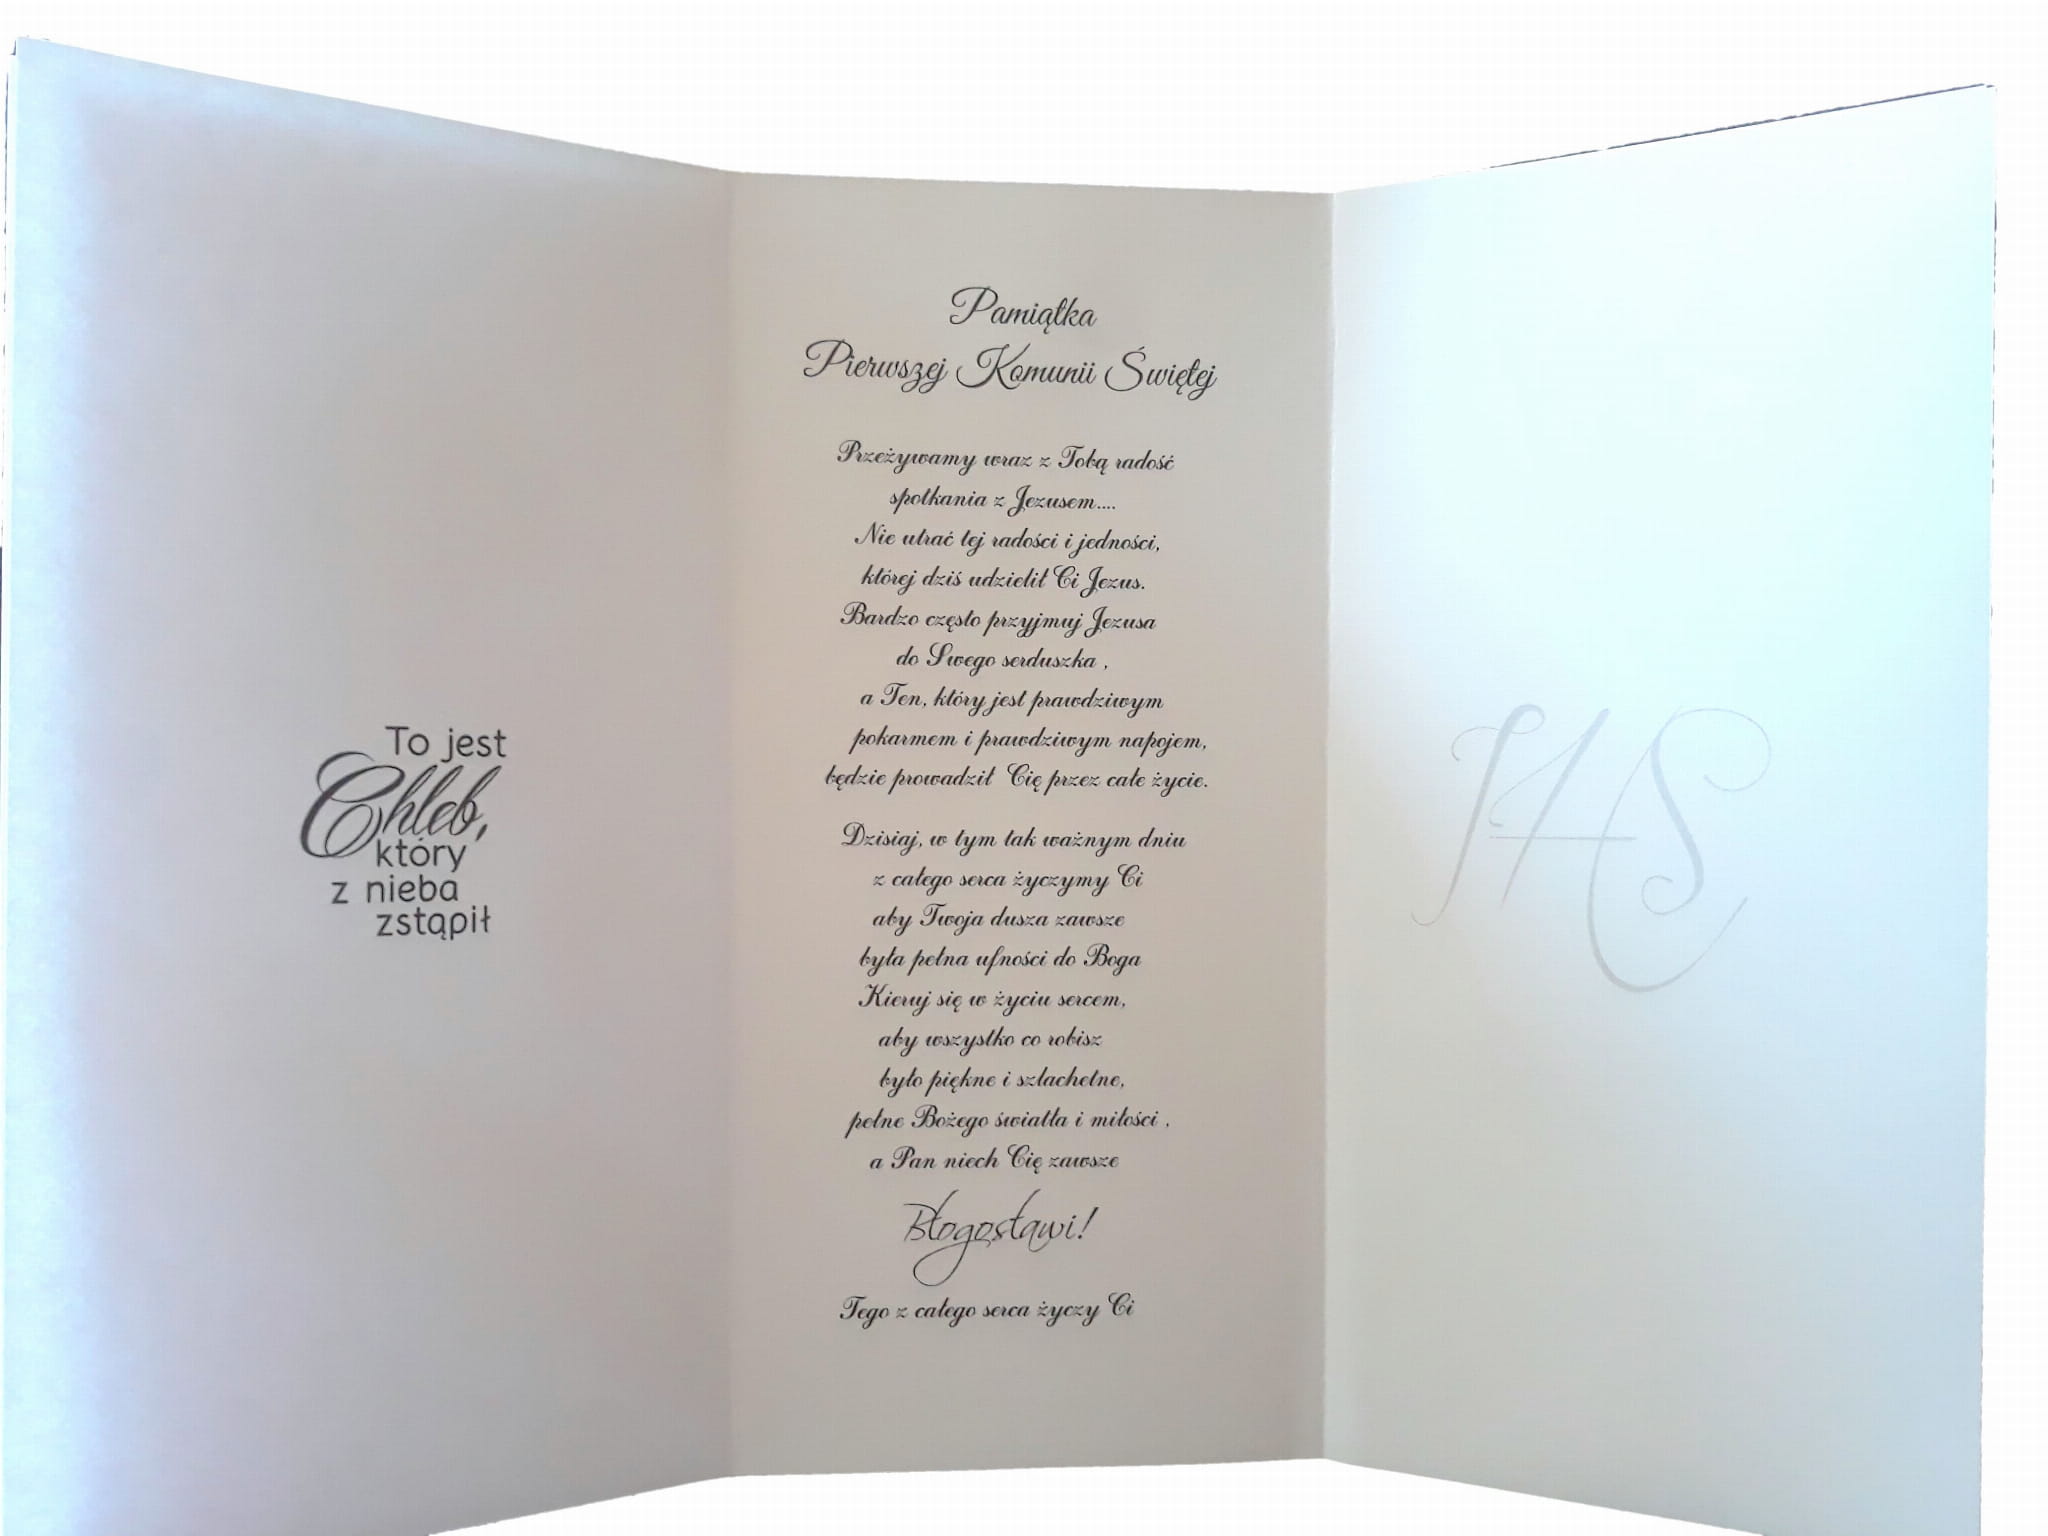 To jest
Chleb,
który
z nieba
zstąpił
Pamiątka
Pierwszej Komunii Świętej
Przeżywamy wraz z Tobą radość
spotkania z Jezusem....
Nie utrać tej radości i jedności,
której dziś udzielił Ci Jezus.
Bardzo często przyjmuj Jezusa
do Swego serduszka ,
a Ten, który jest prawdziwym
pokarmem i prawdziwym napojem,
będzie prowadził Cię przez całe życie.
Dzisiaj, w tym tak ważnym dniu
z całego serca życzymy Ci
aby Twoja dusza zawsze
była pełna ufności do Boga
Kieruj się w życiu sercem,
aby wszystko co robisz
było piękne i szlachetne,
pełne Bożego światła i miłości ,
a Pan niech Cię zawsze
Błogosławi!
Tego z całego serca życzy Ci
IHS